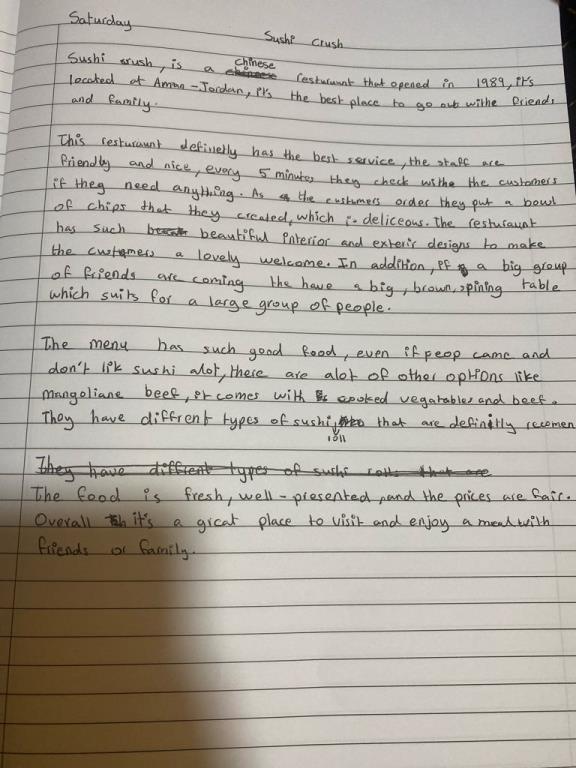 Saturday
Sushi Crush
Sushi crush, is a chinese resturaunt that opened in 1989, it's
located at Amman - Jordan, it's the best place to go out withe friends
and family.
This resturaunt definetly has the best service, the staff are
friendly and nice, every 5 minutes they check withe the customers
if they need anything. As the custumers order they put a bowl
of chips that they created, which is deliceous. The resturaunt
has such beautiful interior and exterir designs to make
the customers a lovely welcome. In addition, if a big group
of friends are coming the have a big, brown, spining table
which suits for a large group of people.
The menu has such good food, even if peop came and
don't lik sushi alot, there are alot of other options like
mangoliane beef, it comes with cooked vegatables and beef.
They have diffrent types of sushi roll that are definitly recomen
They have diffrent types of sushi rolls that are
The food is fresh, well - presented, and the prices are fair.
Overall it's a great place to visit and enjoy a meal with
friends or family.